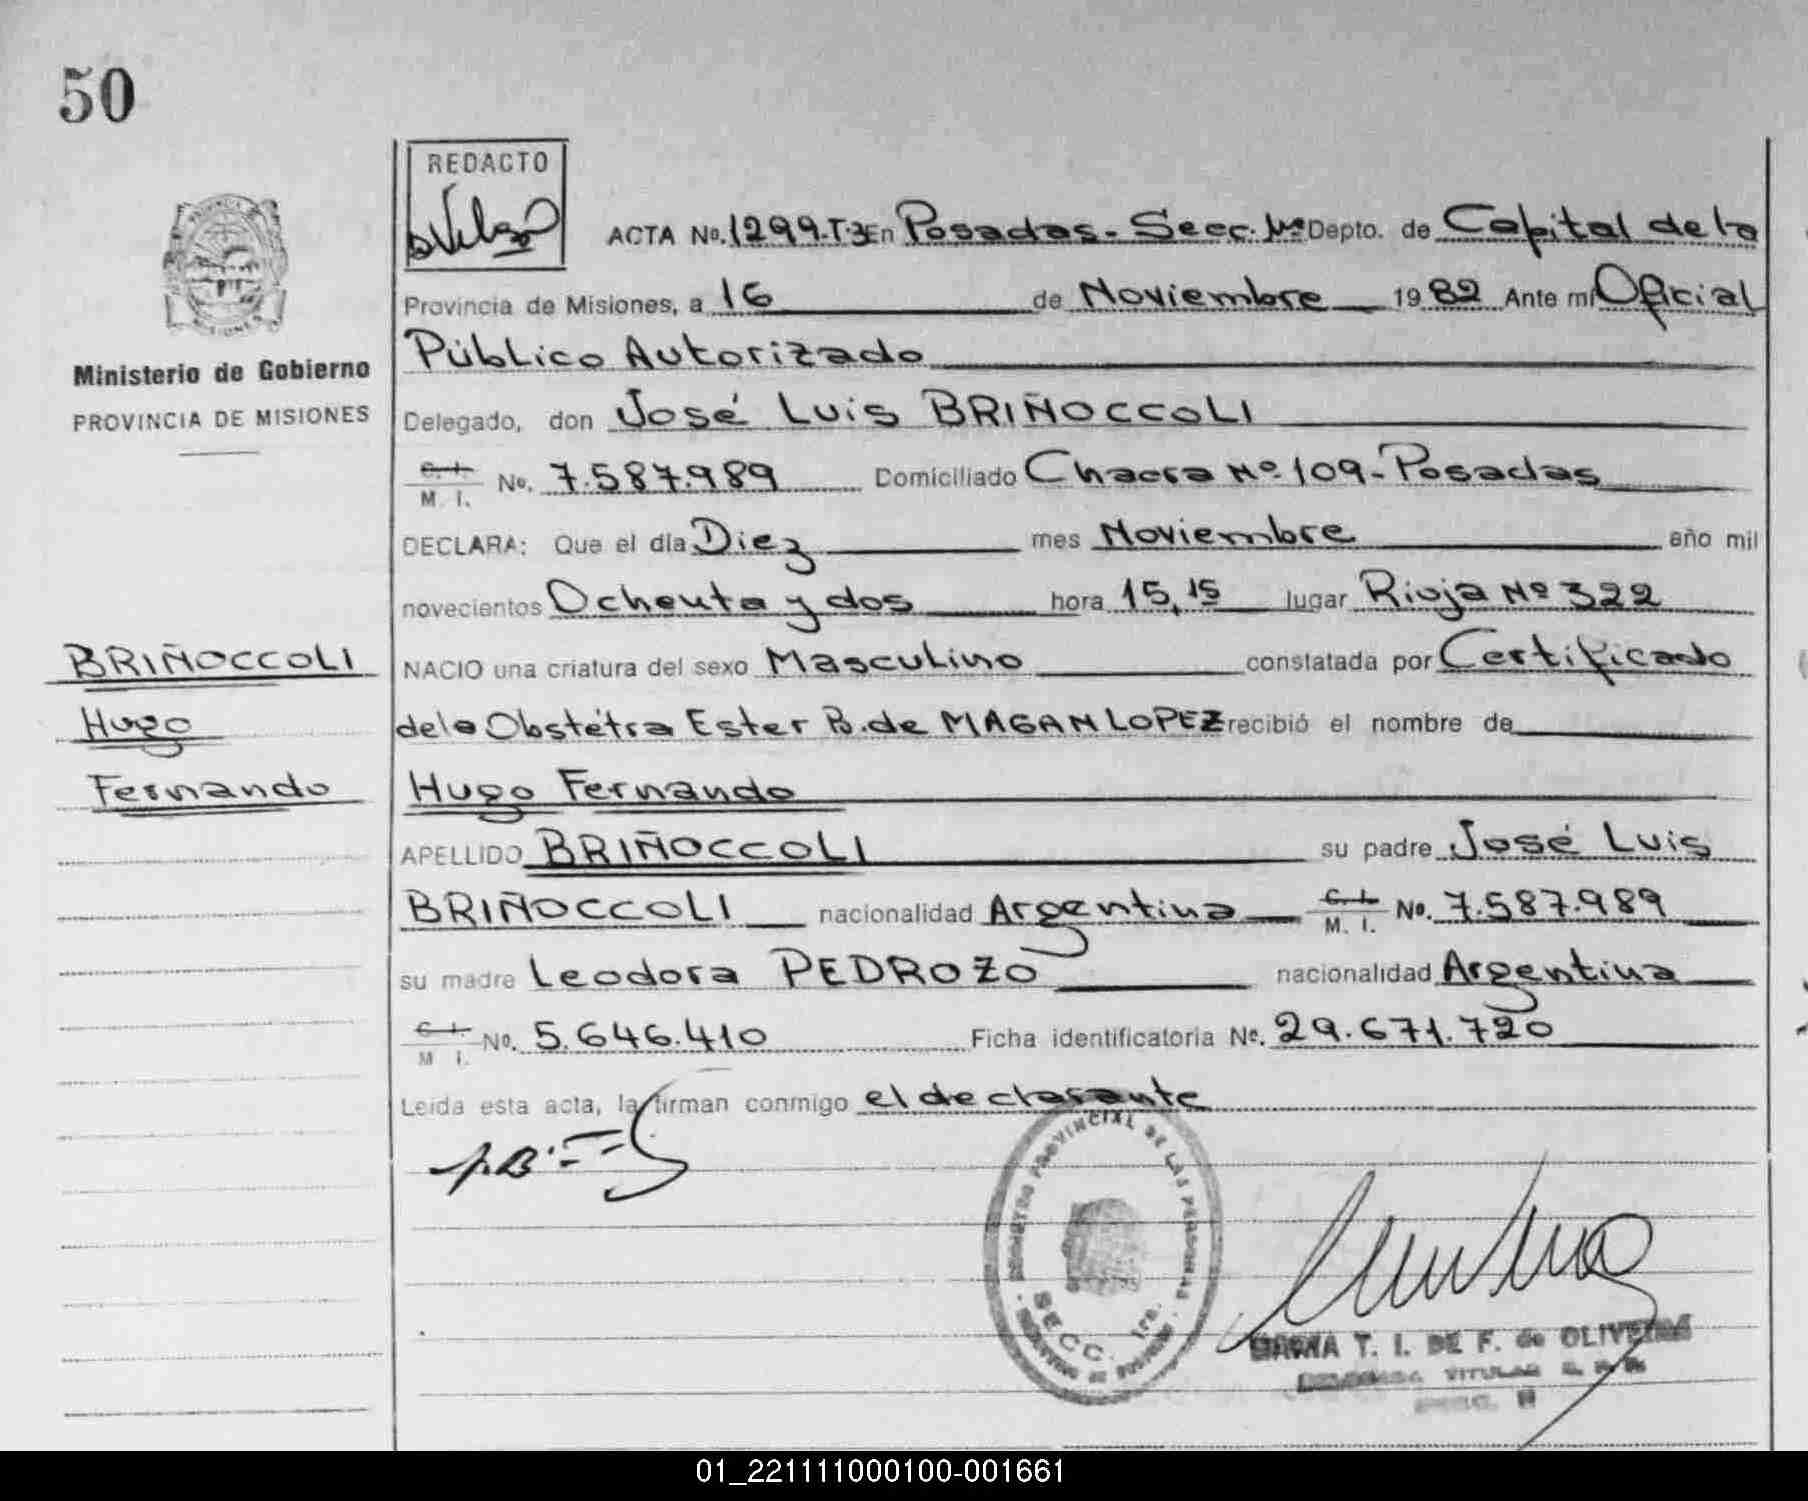 50
REDACTO
ACTA No. 1299-T-3 En Posadas - Secc. 1ª Depto. de Capital de la
Provincia de Misiones, a 16 de Noviembre 1982 Ante mi Oficial
Público Autorizado
Ministerio de Gobierno
PROVINCIA DE MISIONES
Delegado, don José Luis BRIÑOCCOLI
C. I. M. I. No. 7.587.989 Domiciliado Chacra Nº 109 - Posadas
DECLARA: Que el día Diez mes Noviembre año mil
novecientos Ochenta y dos hora 15,15 lugar Rioja Nº 322
BRIÑOCCOLI
NACIO una criatura del sexo Masculino constatada por Certificado
Hugo
de la Obstétra Ester B. de MAGAN LOPEZ recibió el nombre de
Fernando
Hugo Fernando
APELLIDO BRIÑOCCOLI su padre José Luis
BRIÑOCCOLI nacionalidad Argentina C. I. M. I. No. 7.587.989
su madre Leodora PEDROZO nacionalidad Argentina
C. I. M I. No. 5.646.410 Ficha identificatoria No. 29.671.720
Leída esta acta, la firman conmigo el declarante
REGISTRO PROVINCIAL DE LAS PERSONAS
SECC. 1ra.
T. I. DE F. de OLIVEIRA
TITULAR
01_221111000100-001661